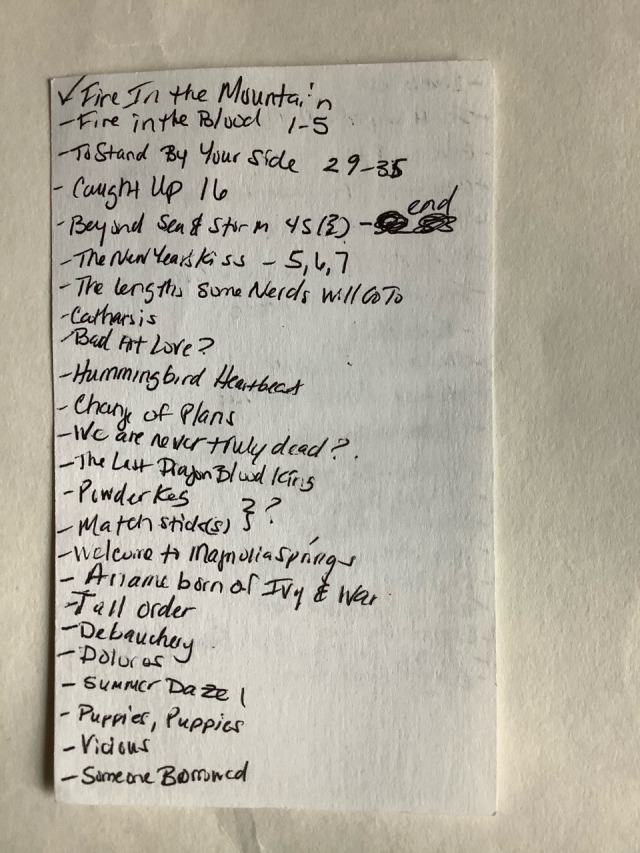 ✓ Fire In the Mountain
- Fire in the Blood 1-5
- To Stand By Your Side 29-35
- Caught Up 16
end
- Beyond Sea & Storm 45(?) -
- The New Years Kiss - 5,6,7
- The lengths some Nerds will Go To
- Catharsis
- Bad Art Love?
- Hummingbird Heartbeat
- Change of Plans
- We are never truly dead?.
- The Last Dragon Blood King
- Powder Keg } ?
- Match stick(s)
- Welcome to Magnolia Springs
- A name born of Ivy & War
- Tall order
- Debauchery
- Doloros
- Summer Daze 1
- Puppies, Puppies
- Vicious
- Someone Borrowed